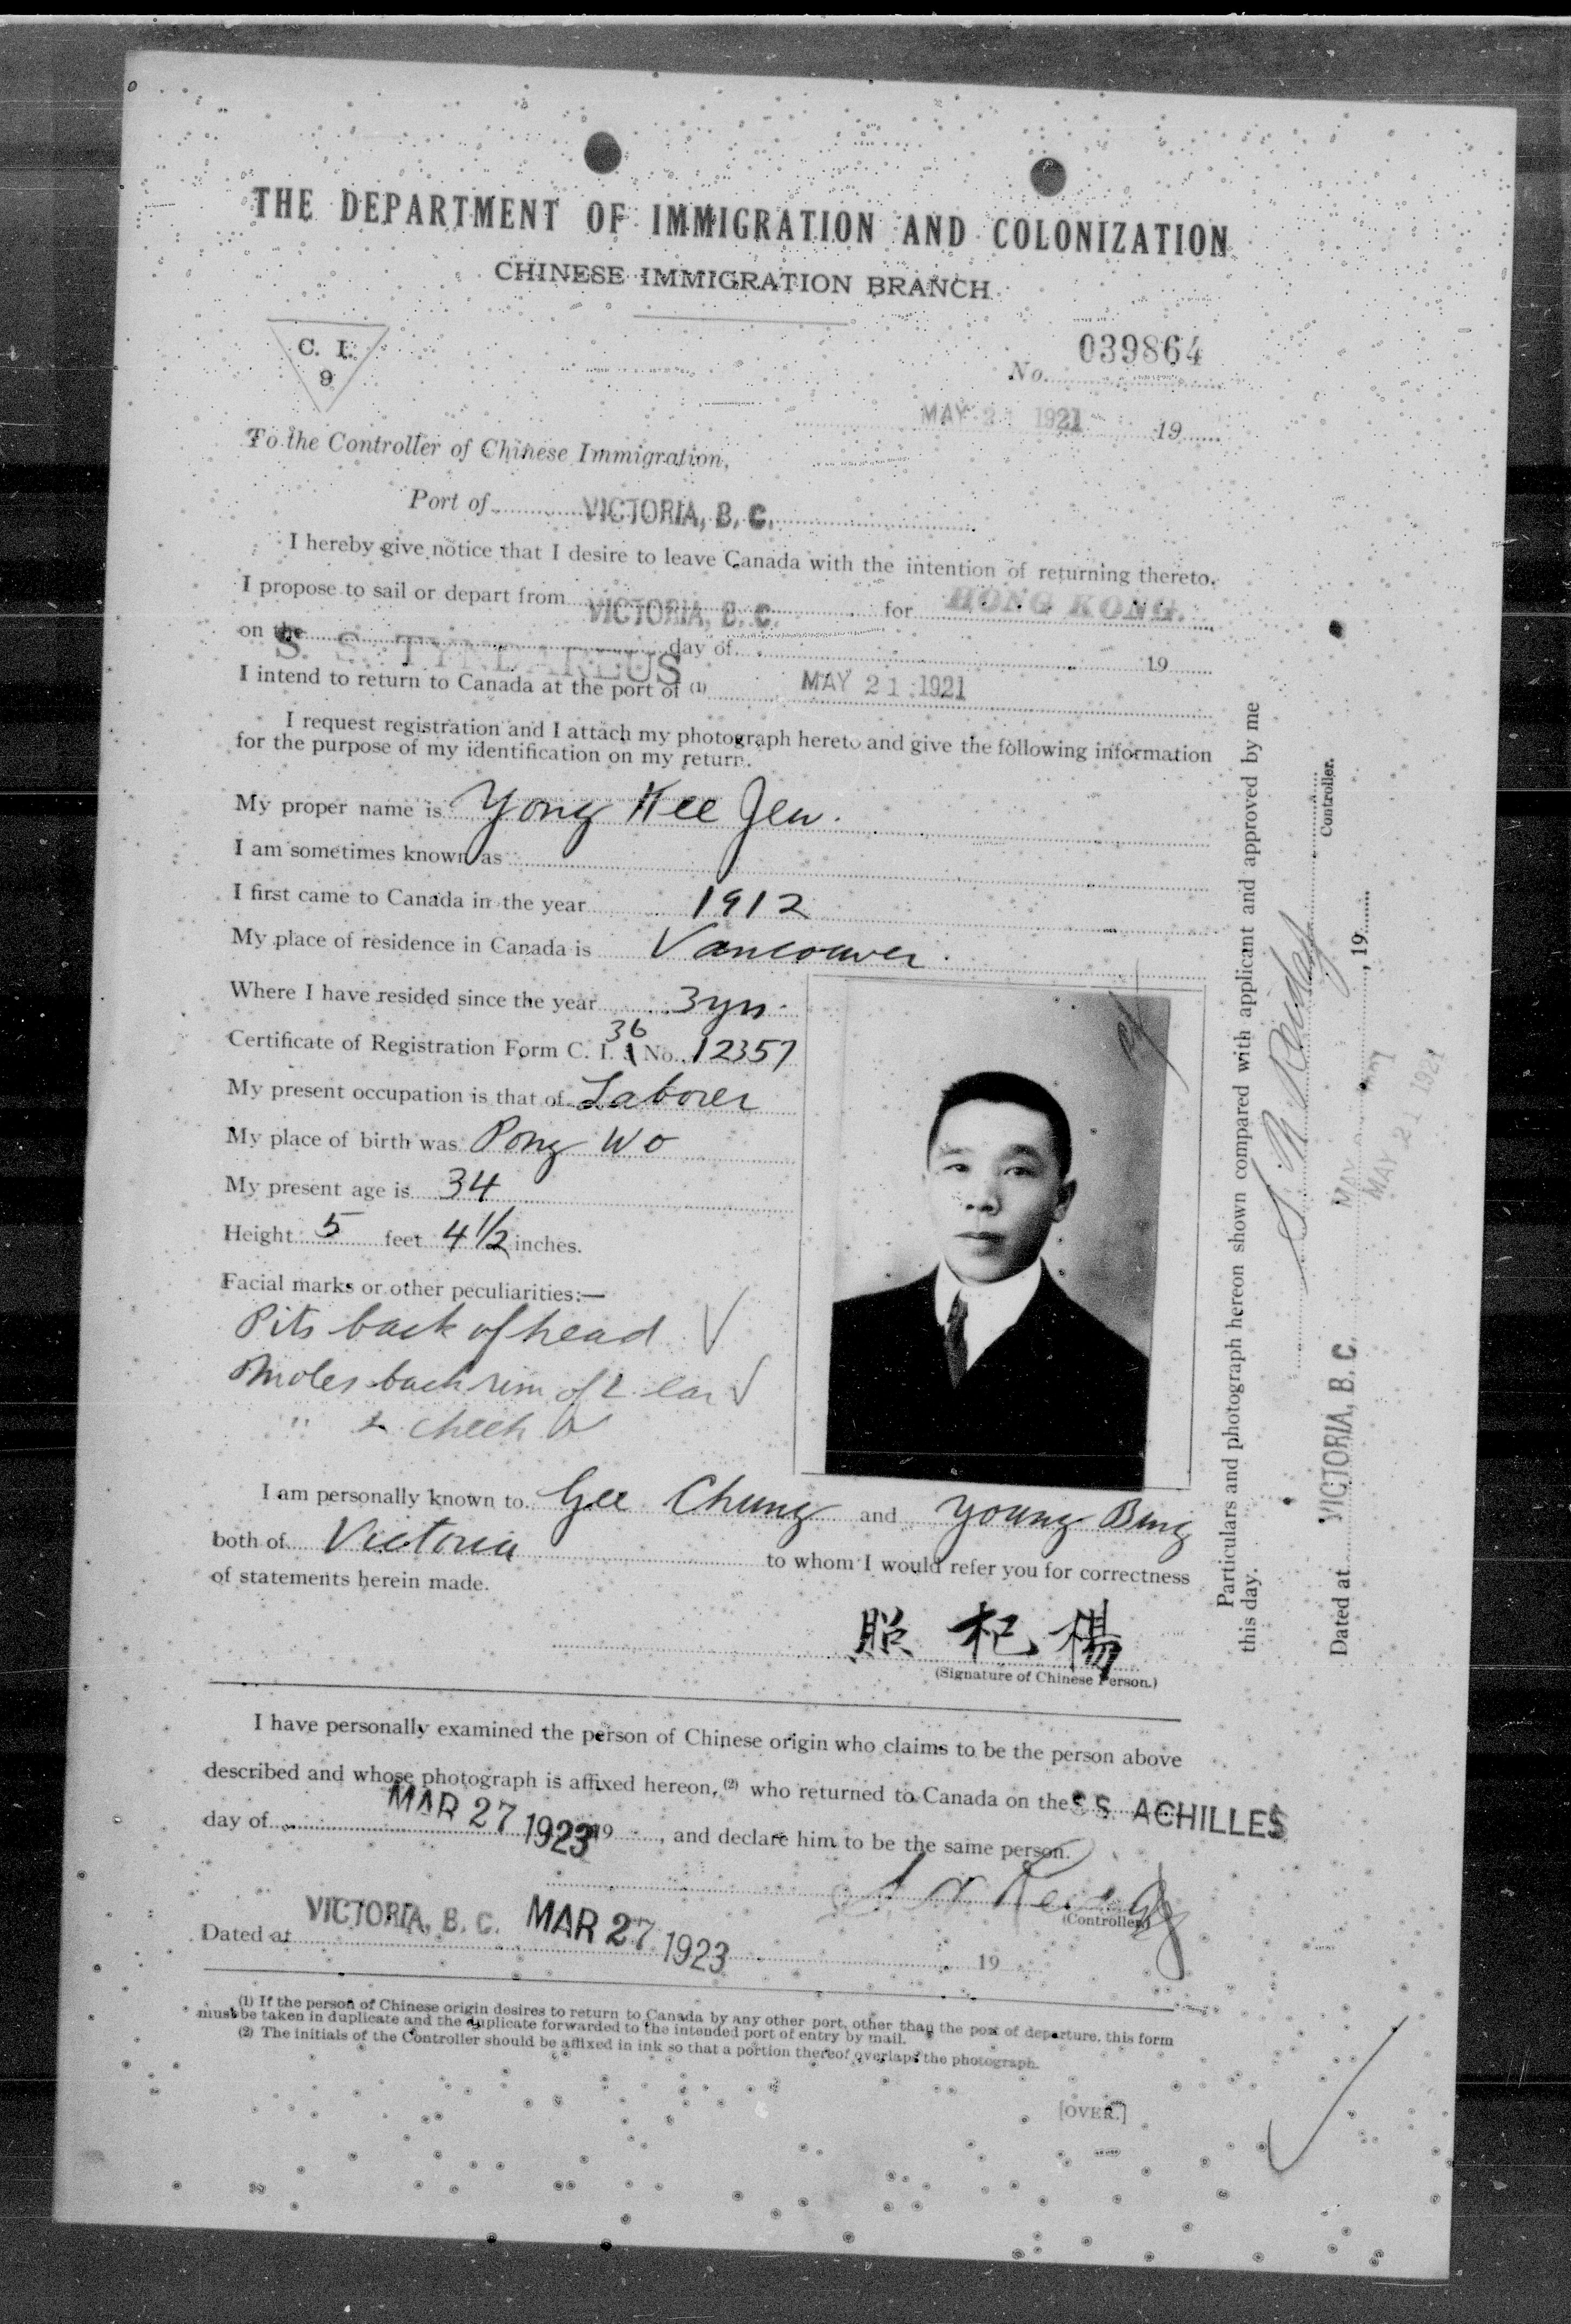 THE DEPARTMENT OF IMMIGRATION AND COLONIZATION
CHINESE IMMIGRATION BRANCH
C. I.
9
039864
No.
MAY 21 1921 19
To the Controller of Chinese Immigration,
Port of VICTORIA, B. C.
I hereby give notice that I desire to leave Canada with the intention of returning thereto.
I propose to sail or depart from VICTORIA, B. C. for HONG KONG.
on the S. S. TYNDAREUS day of 19
I intend to return to Canada at the port of (1) MAY 21 1921
I request registration and I attach my photograph hereto and give the following information
for the purpose of my identification on my return.
My proper name is Yong Kee Jew.
I am sometimes known as
I first came to Canada in the year 1912
My place of residence in Canada is Vancouver.
Where I have resided since the year 3 yrs.
36
Certificate of Registration Form C. I. No. 12357
My present occupation is that of Laborer
My place of birth was Pong Wo
My present age is 34
Height 5 feet 4 1/2 inches.
Facial marks or other peculiarities:—
Pits back of head
Moles back rim of L ear
" L cheek
I am personally known to Gee Chung and Young Bing
both of Victoria to whom I would refer you for correctness
of statements herein made.
照 杞 楊
(Signature of Chinese Person.)
I have personally examined the person of Chinese origin who claims to be the person above
described and whose photograph is affixed hereon, (2) who returned to Canada on the S S. ACHILLES
day of MAR 27 1923 19 , and declare him to be the same person.
(Controller)
Dated at VICTORIA, B. C. MAR 27 1923 19
(1) If the person of Chinese origin desires to return to Canada by any other port, other than the port of departure, this form
must be taken in duplicate and the duplicate forwarded to the intended port of entry by mail.
(2) The initials of the Controller should be affixed in ink so that a portion thereof overlaps the photograph.
[OVER.]
Particulars and photograph hereon shown compared with applicant and approved by me
this day.
Controller.
Dated at VICTORIA, B. C. , 19
MAY 21 1921